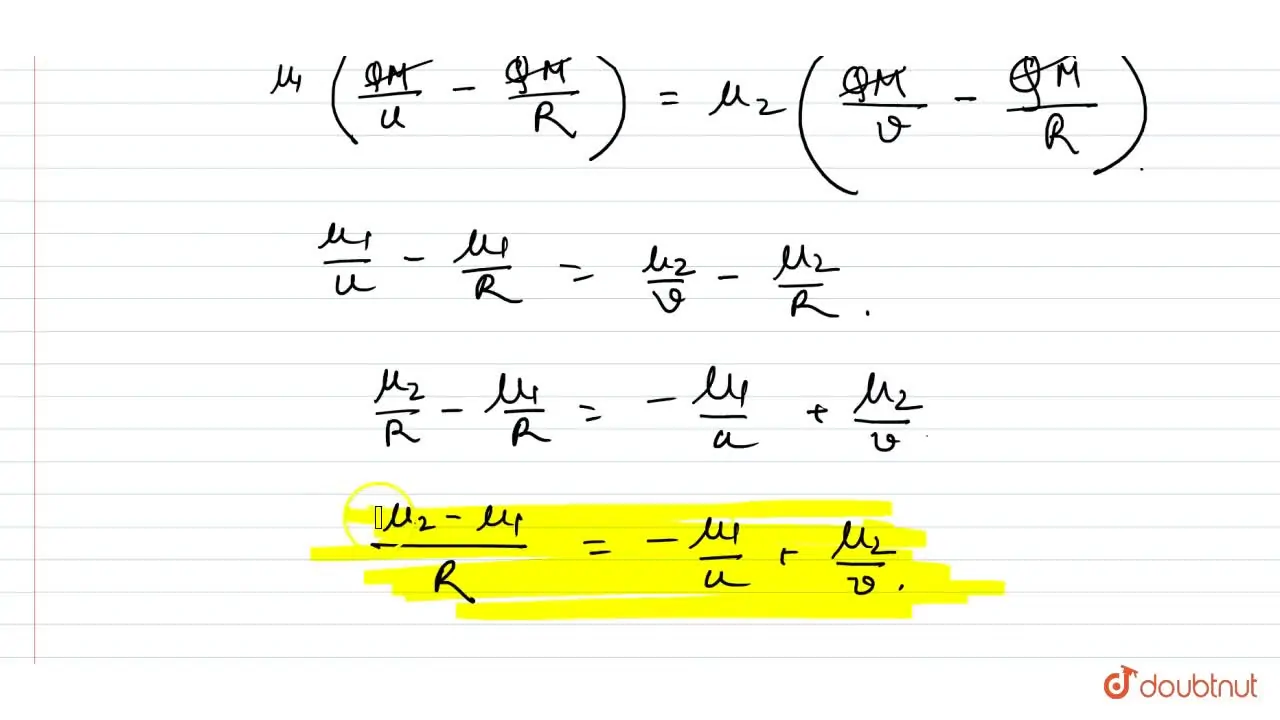 μ₁ (QM/u − QM/R) = μ₂ (QM/v − QM/R).
μ₁/u − μ₁/R = μ₂/v − μ₂/R.
μ₂/R − μ₁/R = − μ₁/u + μ₂/v
(μ₂ − μ₁)/R = − μ₁/u + μ₂/v.
doubtnut